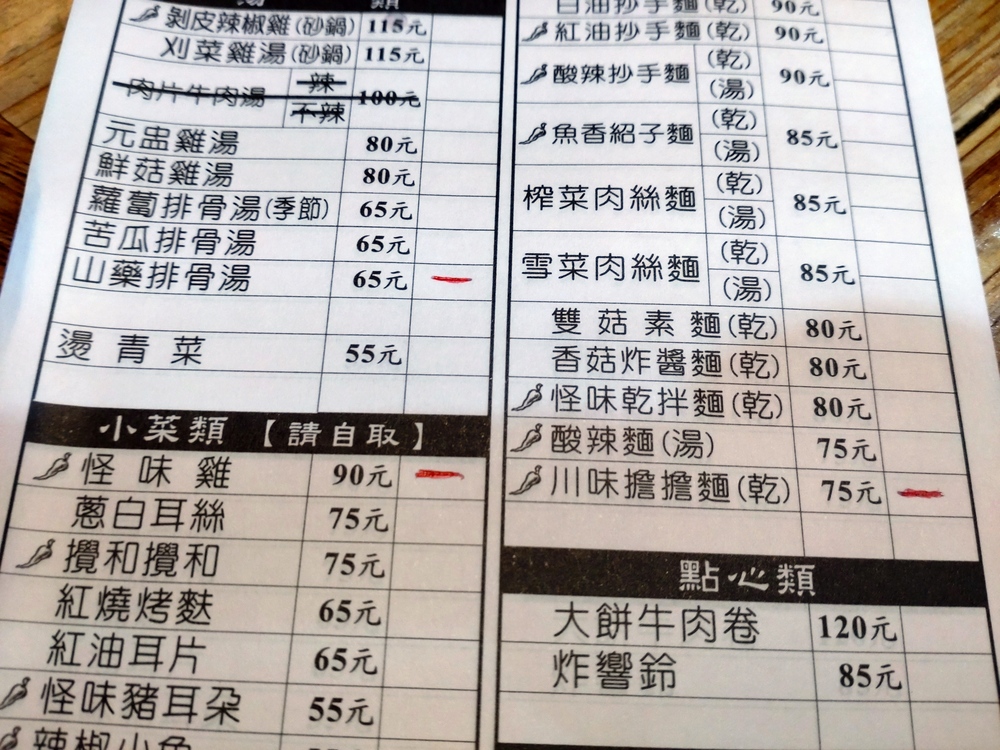 類
剝皮辣椒雞(砂鍋) 115元
刈菜雞湯(砂鍋) 115元
肉片牛肉湯 辣 不辣 100元
元盅雞湯 80元
鮮菇雞湯 80元
蘿蔔排骨湯(季節) 65元
苦瓜排骨湯 65元
山藥排骨湯 65元
燙青菜 55元
小菜類【請自取】
怪味雞 90元
蔥白耳絲 75元
攪和攪和 75元
紅燒烤麩 65元
紅油耳片 65元
怪味豬耳朵 55元
辣椒小魚
白油抄手麵(乾) 90元
紅油抄手麵(乾) 90元
酸辣抄手麵 (乾) (湯) 90元
魚香紹子麵 (乾) (湯) 85元
榨菜肉絲麵 (乾) (湯) 85元
雪菜肉絲麵 (乾) (湯) 85元
雙菇素麵(乾) 80元
香菇炸醬麵(乾) 80元
怪味乾拌麵(乾) 80元
酸辣麵(湯) 75元
川味擔擔麵(乾) 75元
點心類
大餅牛肉卷 120元
炸響鈴 85元